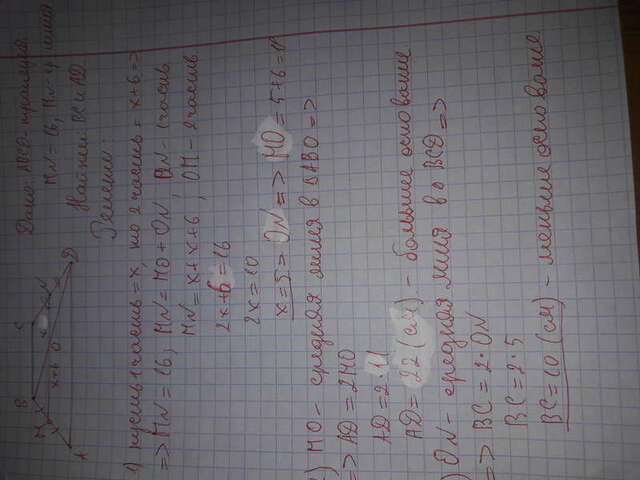 B C
M x+6 O x N
A D
Дано: ABCD-трапеция
MN = 16, MN ср. линия
Найти: BC и AD
Решение
1) пусть 1 часть = x, то 2 часть = x+6 =>
=> MN = 16, MN = MO + ON, ON - 1 часть
MN = x + x + 6, OM - 2 часть
2x + 6 = 16
2x = 10
x = 5 = ON => MO = 5 + 6 = 11
) MO - средняя линия в ΔABD =>
=> AD = 2MO
AD = 2 · 11
AD = 22 (см) - большее основание
) ON - средняя линия в ΔBCD =>
=> BC = 2 · ON
BC = 2 · 5
BC = 10 (см) - меньшее основание